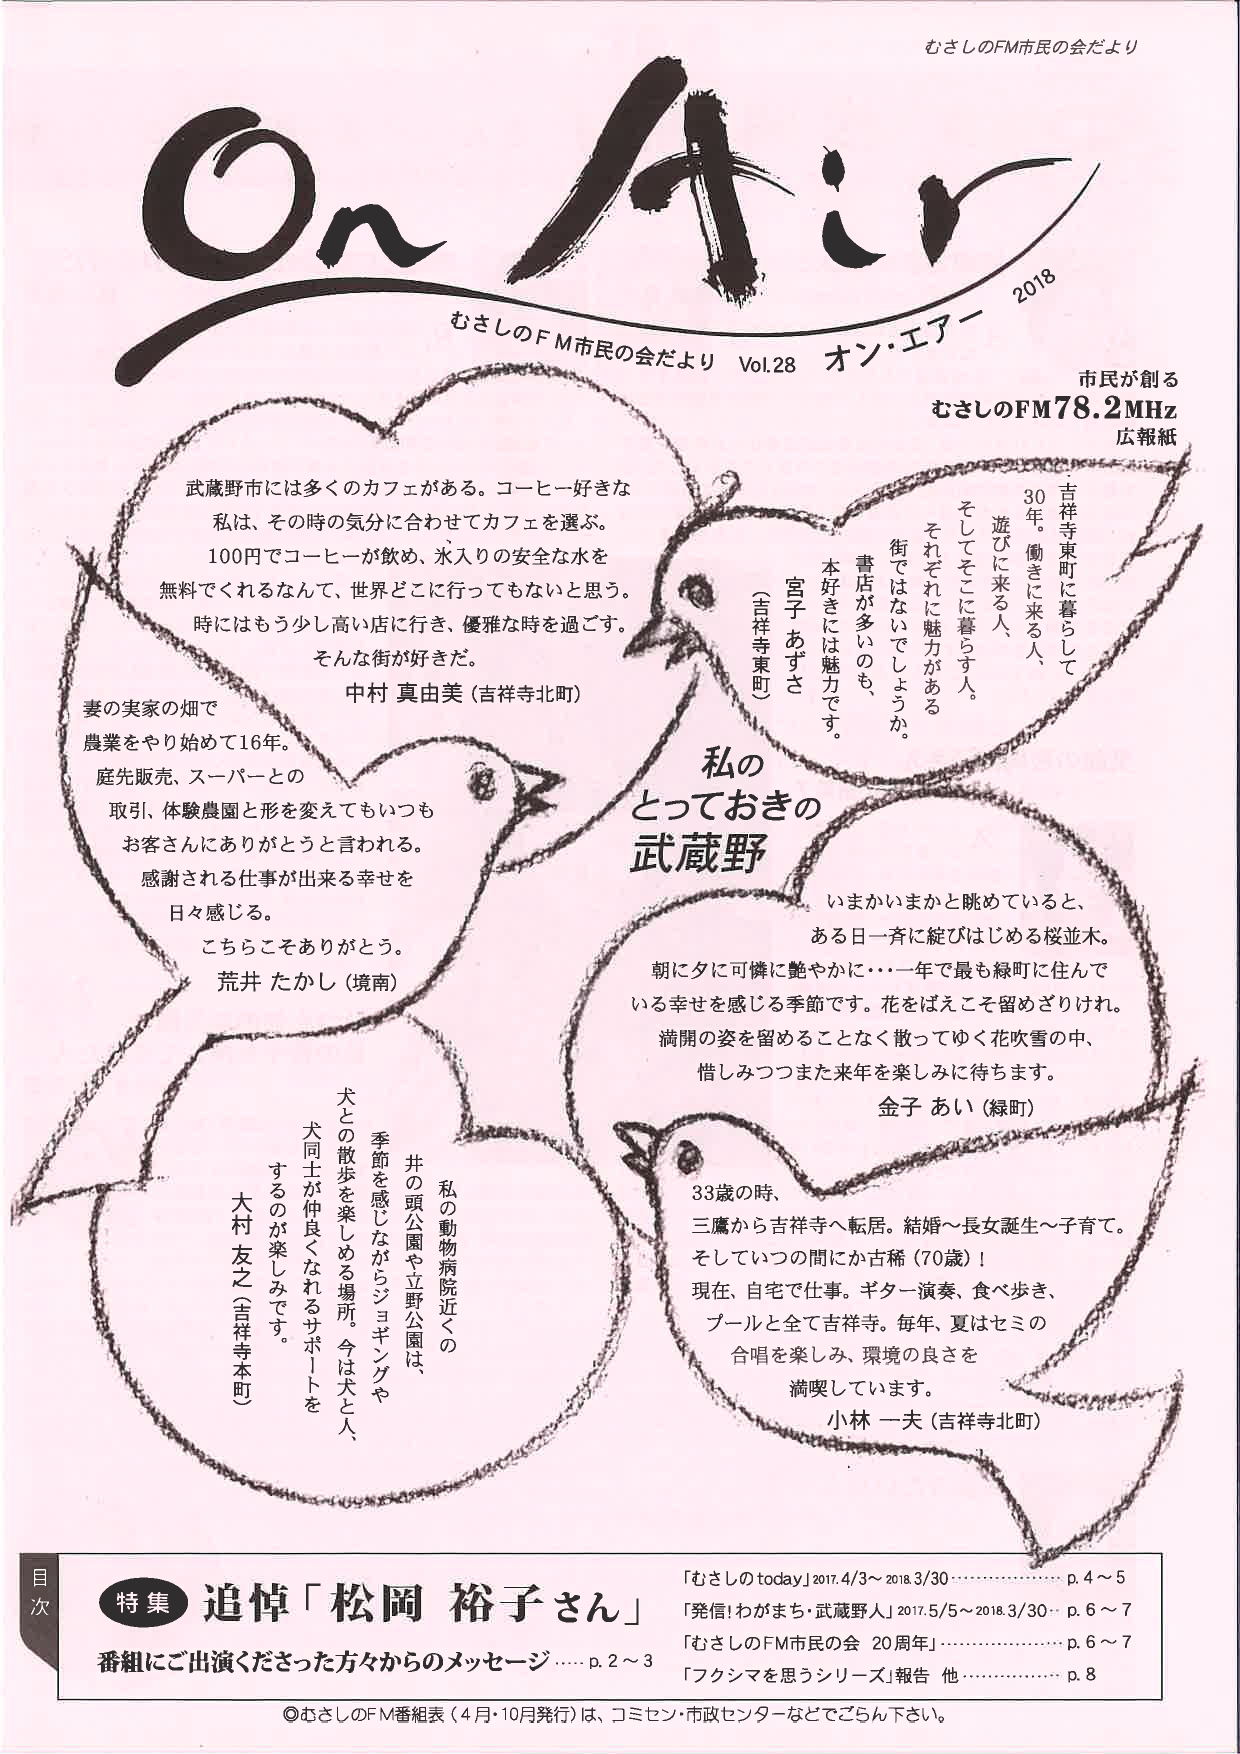 むさしのFM市民の会だより
On Air
むさしのFM市民の会だより Vol.28 オン・エアー 2018
市民が創る
むさしのFM78.2MHz
広報紙
武蔵野市には多くのカフェがある。コーヒー好きな
私は、その時の気分に合わせてカフェを選ぶ。
100円でコーヒーが飲め、氷入りの安全な水を
無料でくれるなんて、世界どこに行ってもないと思う。
時にはもう少し高い店に行き、優雅な時を過ごす。
そんな街が好きだ。
中村 真由美（吉祥寺北町）
吉祥寺東町に暮らして
30年。働きに来る人、
遊びに来る人、
そしてそこに暮らす人。
それぞれに魅力がある
街ではないでしょうか。
書店が多いのも、
本好きには魅力です。
宮子 あずさ
（吉祥寺東町）
妻の実家の畑で
農業をやり始めて16年。
庭先販売、スーパーとの
取引、体験農園と形を変えてもいつも
お客さんにありがとうと言われる。
感謝される仕事が出来る幸せを
日々感じる。
こちらこそありがとう。
荒井 たかし（境南）
私の
とっておきの
武蔵野
いまかいまかと眺めていると、
ある日一斉に綻びはじめる桜並木。
朝に夕に可憐に艶やかに･･･一年で最も緑町に住んで
いる幸せを感じる季節です。花をばえこそ留めざりけれ。
満開の姿を留めることなく散ってゆく花吹雪の中、
惜しみつつまた来年を楽しみに待ちます。
金子 あい（緑町）
私の動物病院近くの
井の頭公園や立野公園は、
季節を感じながらジョギングや
犬との散歩を楽しめる場所。今は犬と人、
犬同士が仲良くなれるサポートを
するのが楽しみです。
大村 友之（吉祥寺本町）
33歳の時、
三鷹から吉祥寺へ転居。結婚～長女誕生～子育て。
そしていつの間にか古稀（70歳）！
現在、自宅で仕事。ギター演奏、食べ歩き、
プールと全て吉祥寺。毎年、夏はセミの
合唱を楽しみ、環境の良さを
満喫しています。
小林 一夫（吉祥寺北町）
目次
特集 追悼「松岡 裕子さん」
番組にご出演くださった方々からのメッセージ ····· p. 2～3
「むさしのtoday」2017. 4/3～2018. 3/30 ·················· p. 4～5
「発信！わがまち・武蔵野人」2017. 5/5～2018. 3/30 ·· p. 6～7
「むさしのFM市民の会 20周年」···················· p. 6～7
「フクシマを思うシリーズ」報告 他 ················ p. 8
◎むさしのFM番組表（4月・10月発行）は、コミセン・市政センターなどでごらん下さい。